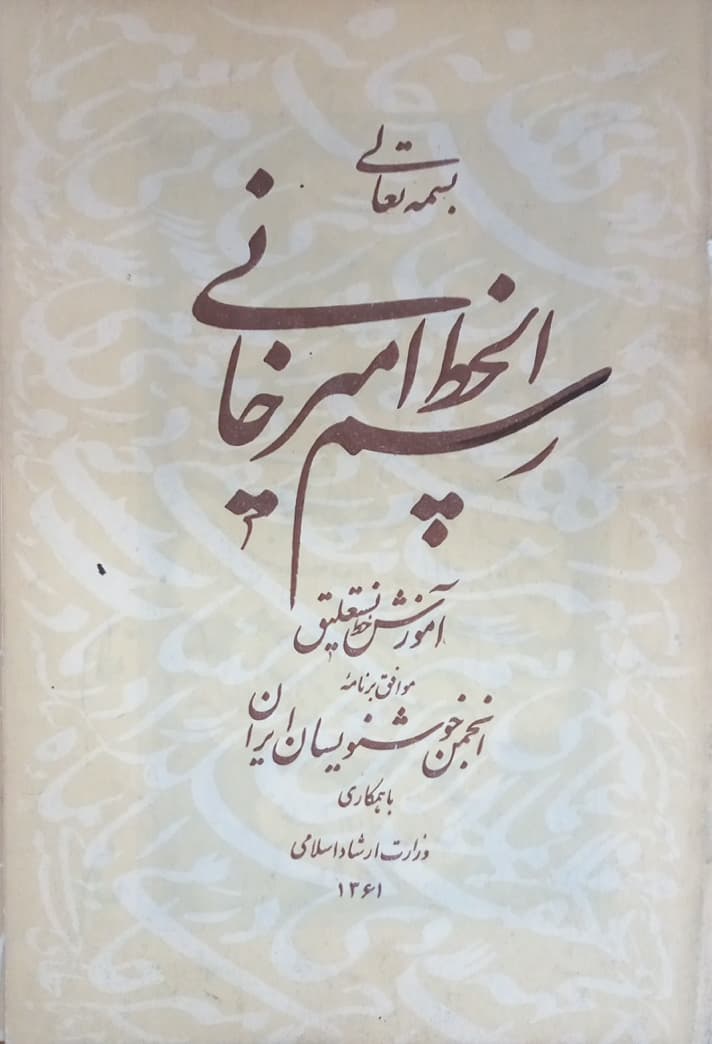 بسمه تعالی
رسم الخط امیرخانی
آموزش خط نستعلیق
موافق برنامهٔ
انجمن خوشنویسان ایران
با همکاری
وزارت ارشاد اسلامی
۱۳۶۱